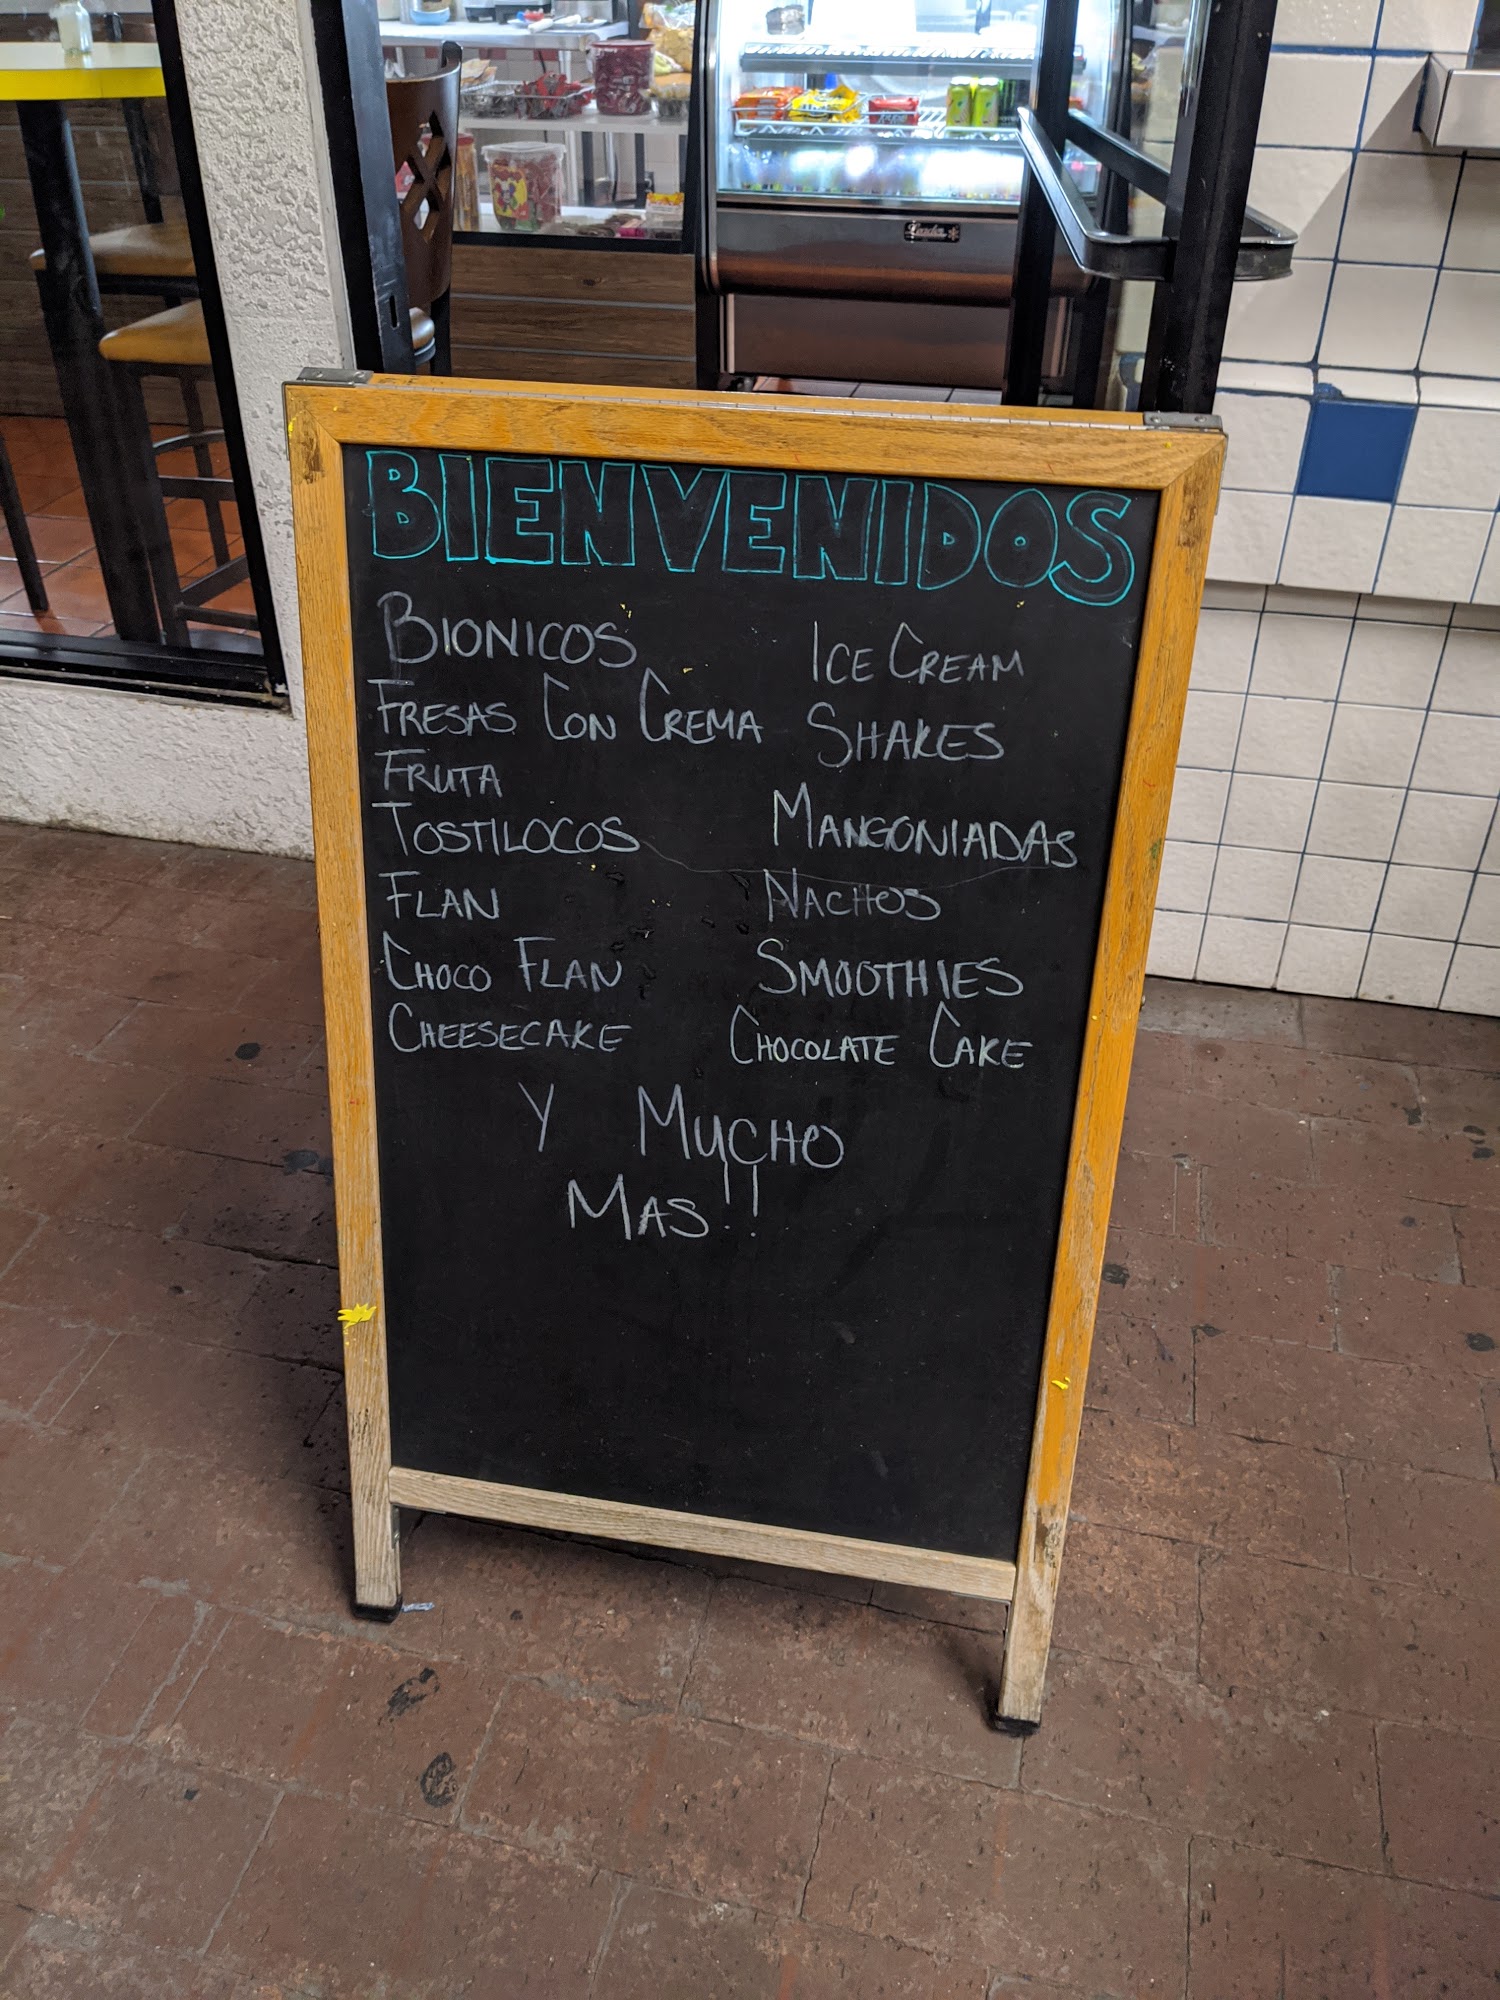 BIENVENIDOS
BIONICOS
FRESAS CON CREMA
FRUTA
TOSTILOCOS
FLAN
CHOCO FLAN
CHEESECAKE
ICE CREAM
SHAKES
MANGONIADAS
NACHOS
SMOOTHIES
CHOCOLATE CAKE
Y MUCHO
MAS!!